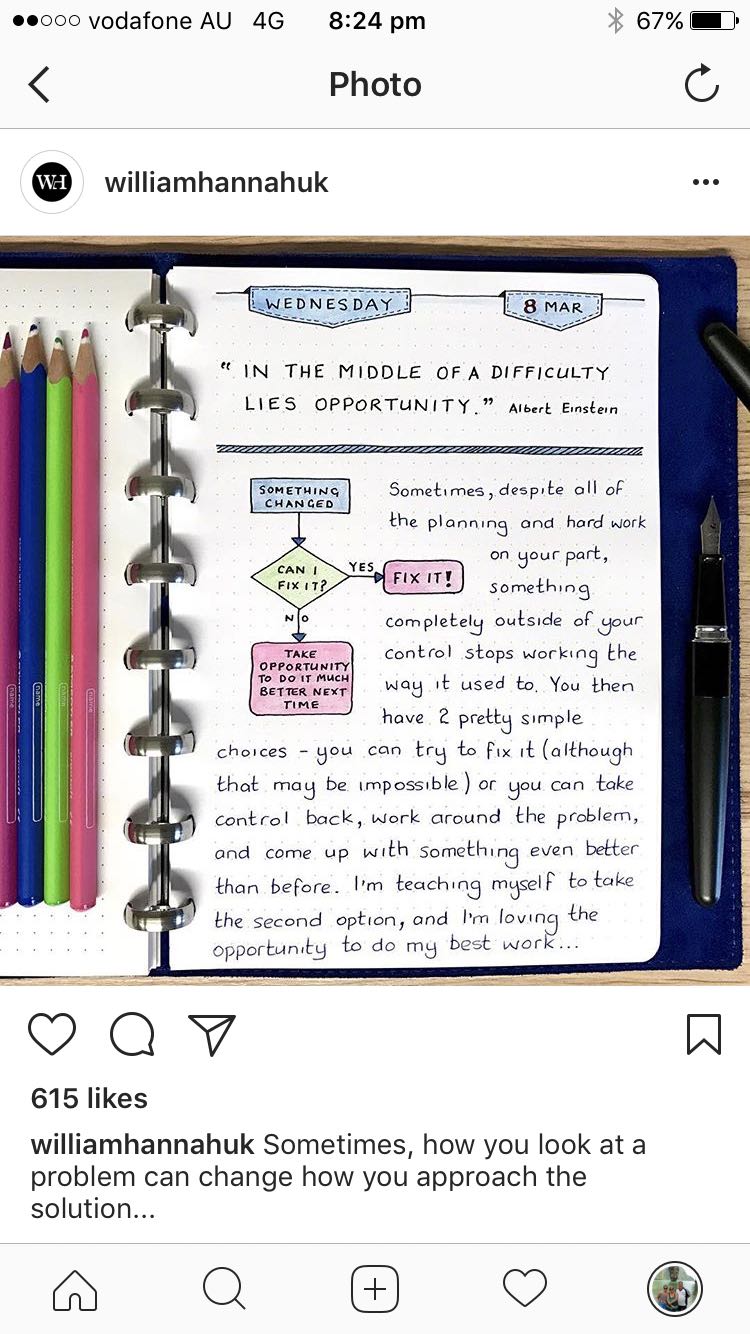 vodafone AU 4G 8:24 pm 67%
Photo
WH williamhannahuk
WEDNESDAY 8 MAR
“ IN THE MIDDLE OF A DIFFICULTY
LIES OPPORTUNITY.” Albert Einstein
SOMETHING
CHANGED
CAN I
FIX IT?
YES
FIX IT!
NO
TAKE
OPPORTUNITY
TO DO IT MUCH
BETTER NEXT
TIME
Sometimes, despite all of
the planning and hard work
on your part,
something
completely outside of your
control stops working the
way it used to. You then
have 2 pretty simple
choices - you can try to fix it (although
that may be impossible) or you can take
control back, work around the problem,
and come up with something even better
than before. I'm teaching myself to take
the second option, and I'm loving the
opportunity to do my best work...
name
name
name
name
615 likes
williamhannahuk Sometimes, how you look at a
problem can change how you approach the
solution...